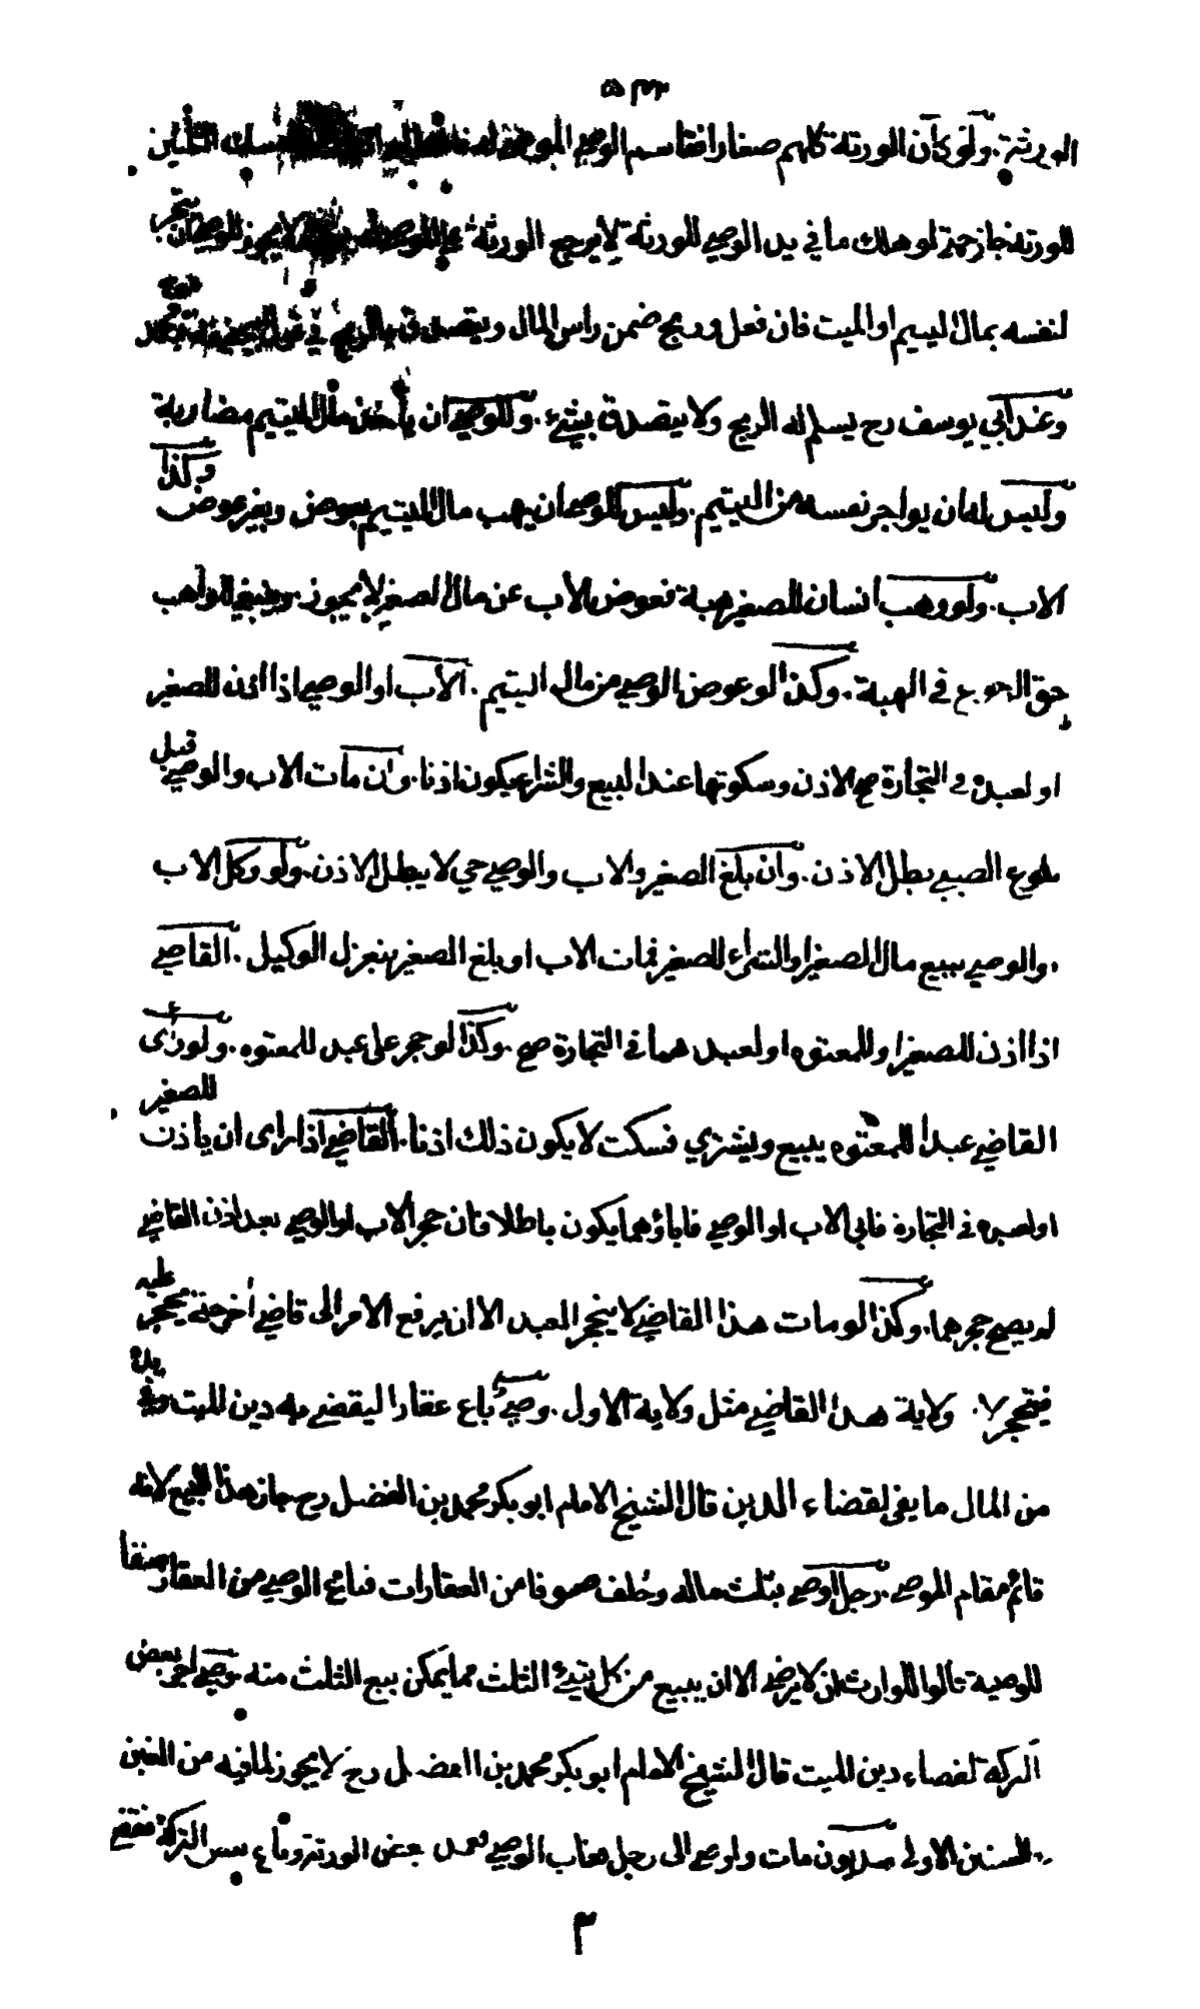 الورثة. ولو كان الورثة كلهم صغارا فقاسم الوصي الموصى له الثلثين
للورثة جاز حتى لو هلك ما في يد الوصي للورثة لا يرجع الورثة على الموصى لا يجوز للوصي ان يتجر
لنفسه بمال اليتيم او الميت فان فعل وربح ضمن راس المال ويتصدق بالربح في قول ابي حنيفة ومحمد
وعند ابي يوسف رح يسلم له الربح ولا يتصدق بشيء. وللوصي ان يأخذ مال اليتيم مضاربة
وليس له ان يواجر نفسه من اليتيم. وليس للوصي ان يهب مال اليتيم بعوض وبغير عوض وكذا
الاب. ولو وهب انسان للصغير هبة فعوض الاب عن مال الصغير لا يجوز. ويبقي للواهب
حق الرجوع في الهبة. وكذا لو عوض الوصي من مال اليتيم. الاب او الوصي اذا اذن للصغير
او لعبده في التجارة صح الاذن وسكوتهما عند البيع والشراء يكون اذنا. وان مات الاب والوصي قبل
بلوغ الصبي بطل الاذن. وان بلغ الصغير والاب والوصي حي لا يبطل الاذن. ولو وكل الاب
والوصي ببيع مال الصغير او الشراء للصغير فمات الاب او بلغ الصغير ينعزل الوكيل. القاضي
اذا اذن للصغير او للمعتوه او لعبد هما في التجارة صح. وكذا لو حجر على عبد للمعتوه. ولو رأى
القاضي عبدا للمعتوه يبيع ويشتري فسكت لا يكون ذلك اذنا. القاضي اذا راى ان ياذن للصغير
او لعبده في التجارة فابى الاب او الوصي فاباؤهما يكون باطلا فان حجر الاب او الوصي بعد اذن القاضي
لم يصح حجرهما. وكذا لو مات هذا القاضي لا ينحجر العبد الا ان يرفع الامر الى قاضي أخر حتى يحجر عليه
فينحجر لان ولاية هذا القاضي مثل ولاية الاول. وصي باع عقارا ليقضي به دين الميت وفي يده
من المال ما يفي لقضاء الدين قال الشيخ الامام ابو بكر محمد بن الفضل رح جاز هذا البيع لانه
قائم مقام الموصي. رجل اوصى بثلث ماله وخلف صنوفا من العقارات فباع الوصي من العقار صنفا
للوصية قالوا للوارث ان لا يرضى الا ان يبيع من كل شيء الثلث مما يمكن بيع الثلث منه وصي بعض
التركة لقضاء دين الميت قال الشيخ الامام ابو بكر محمد بن الفضل رح لا يجوز لما فيه من الغبن
الاولى مديون مات واوصى الى رجل فغاب الوصي فعمد بعض الورثة وباع بعض التركة فقضى
٣